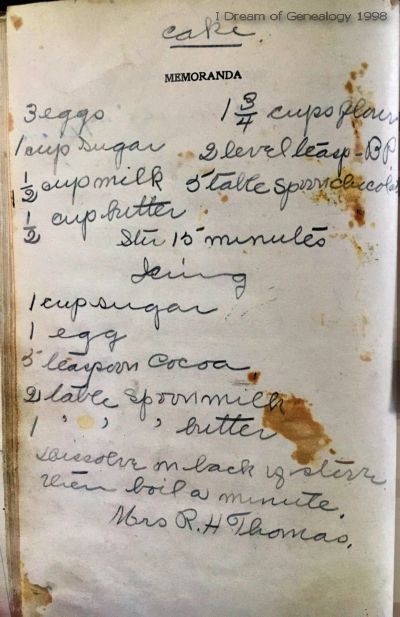 I Dream of Genealogy 1998
cake.
MEMORANDA
3 eggs 1 3/4 cups flour
1 cup sugar 2 level teasp-BP
1/2 cup milk 5 table spoon chocolat
1/2 cup butter
Stir 15 minutes
Icing
1 cup sugar
1 egg
5 teaspoon cocoa
2 table spoon milk
1 " " " butter
Dissolve on back of stove
then boil a minute.
Mrs R. H Thomas.